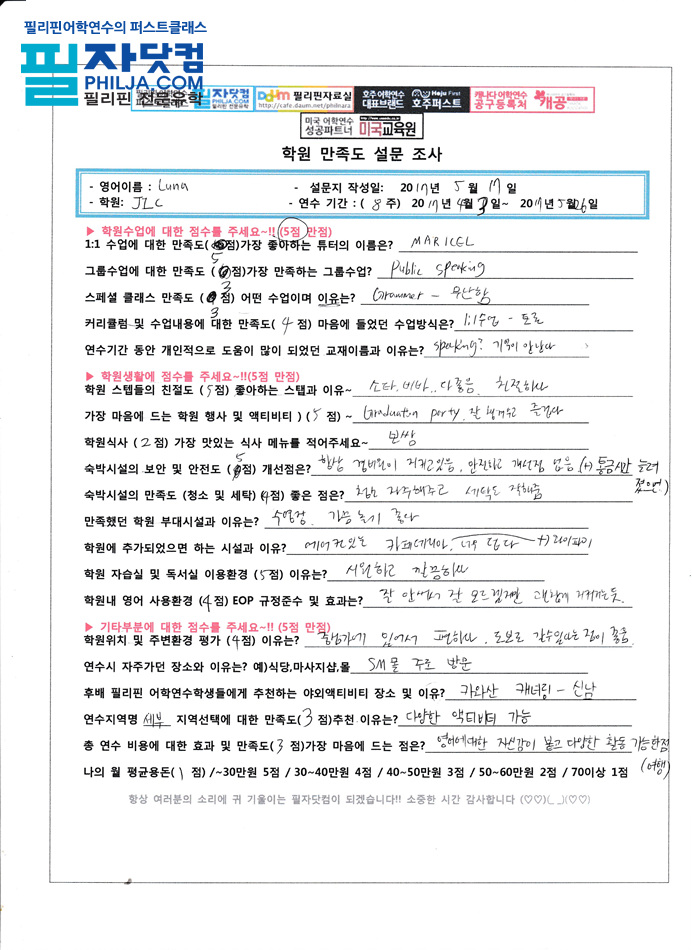 필리핀어학연수의 퍼스트클래스
필자닷컴
PHILJA.COM
필리핀 전문유학
필자닷컴 PHILJA.COM Daum 필리핀자료실 http://cafe.daum.net/philnara 호주 어학연수 대표브랜드 Hoju First 호주퍼스트 캐나다 어학연수 공구등록처 캐공
미국 어학연수 성공파트너 미국교육원
학원 만족도 설문 조사
- 영어이름 : Luna - 설문지 작성일: 2017년 5월 17일
- 학원: JLC - 연수 기간 : ( 8 주) 2017년 4월 3일~ 2017년 5월26일
▶ 학원수업에 대한 점수를 주세요~!! (5점 만점)
1:1 수업에 대한 만족도( 5점)가장 좋아하는 튜터의 이름은? MARICEL
그룹수업에 대한 만족도 ( 3점)가장 만족하는 그룹수업? Public speaking
스페셜 클래스 만족도 ( 3점) 어떤 수업이며 이유는? Grammer - 무난함
커리큘럼 및 수업내용에 대한 만족도( 4 점) 마음에 들었던 수업방식은? 1:1수업 - 토론
연수기간 동안 개인적으로 도움이 많이 되었던 교재이름과 이유는? speaking? 기억이 안난다
▶ 학원생활에 점수를 주세요~!!(5점 만점)
학원 스텝들의 친절도 ( 5점) 좋아하는 스탭과 이유~ 소타, 비바.. 다좋음. 친절하다
가장 마음에 드는 학원 행사 및 액티비티 ) ( 5 점) ~ Graduation party, 잘 챙겨주고 즐겁다
학원식사 ( 2점) 가장 맛있는 식사 메뉴를 적어주세요~ 보쌈
숙박시설의 보안 및 안전도 ( 5점) 개선점은? 항상 경비원이 지키고있음. 안전하고 개선점 없음 (+) 통금시간 늘려졌으면)
숙박시설의 만족도 (청소 및 세탁) (4점) 좋은 점은? 청소 자주해주고 세탁도 잘해줌
만족했던 학원 부대시설과 이유는? 수영장. 가끔 놀기 좋다
학원에 추가되었으면 하는 시설과 이유? 에어컨있는 카페테리아, 너무 덥다 +) 와이파이
학원 자습실 및 독서실 이용환경 ( 5점) 이유는? 시원하고 깔끔하다
학원내 영어 사용환경 ( 4점) EOP 규정준수 및 효과는? 잘 안써서 잘 모르겠지만 괜찮게 지켜지는듯.
▶ 기타부분에 대한 점수를 주세요~!! (5점 만점)
학원위치 및 주변환경 평가 ( 4점) 이유는? 중심가에 있어서 편하다. 도보로 갈수있다는 점이 좋음
연수시 자주가던 장소와 이유는? 예)식당,마사지샵,몰 SM몰 주로 방문
후배 필리핀 어학연수학생들에게 추천하는 야외액티비티 장소 및 이유? 카와산 캐녀링 - 신남
연수지역명 세부 지역선택에 대한 만족도( 3 점)추천 이유는? 다양한 액티비티 가능
총 연수 비용에 대한 효과 및 만족도( 3 점)가장 마음에 드는 점은? 영어에대한 자신감이 붙고 다양한 활동 가능한점 (여행)
나의 월 평균용돈( 1 점) /~30만원 5점 / 30~40만원 4점 / 40~50만원 3점 / 50~60만원 2점 / 700이상 1점
항상 여러분의 소리에 귀 기울이는 필자닷컴이 되겠습니다!! 소중한 시간 감사합니다 (♡♡)(_ _)(♡♡)